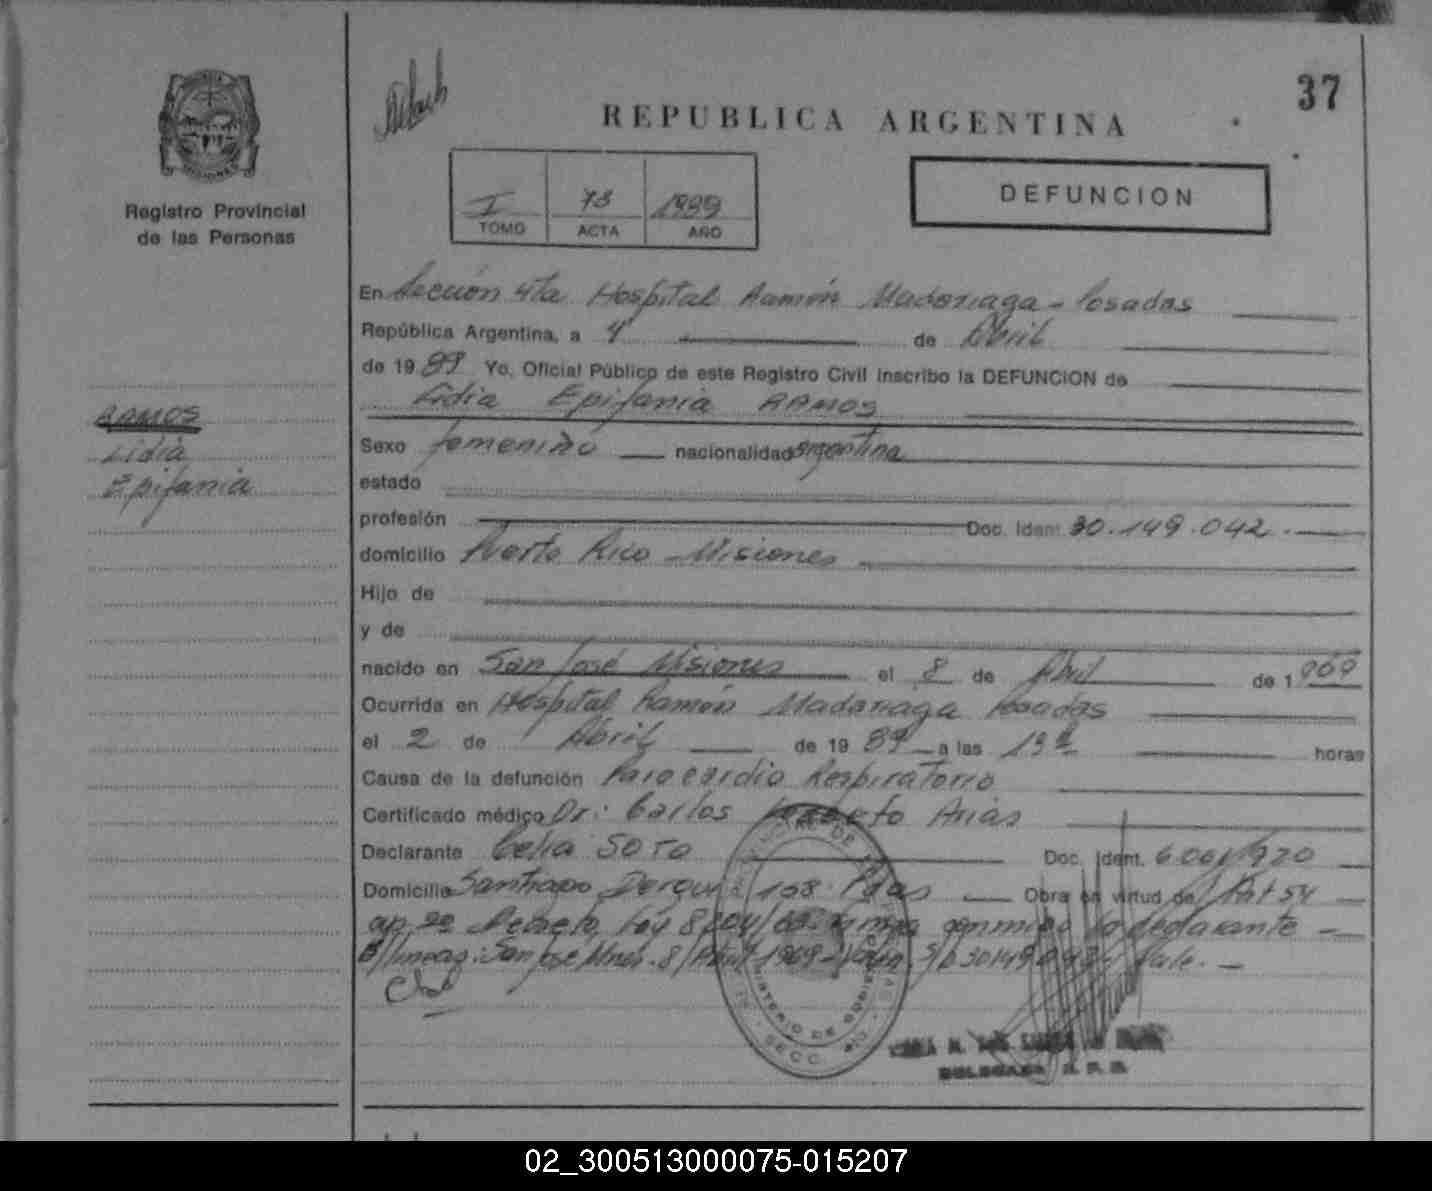 37
REPUBLICA ARGENTINA
Registro Provincial
de las Personas
DEFUNCION
I 73 1989
TOMO ACTA AÑO
En Sección 4ta Hospital Ramón Madariaga - Posadas
República Argentina, a 4 de Abril
de 1989 Yo, Oficial Público de este Registro Civil inscribo la DEFUNCION de
Lidia Epifania RAMOS
RAMOS
Lidia
Epifania
Sexo femenino nacionalidad argentina
estado
profesión Doc. Ident. 30.149.042.-
domicilio Puerto Rico - Misiones
Hijo de
y de
nacido en San José Misiones el 8 de Abril de 1969
Ocurrida en Hospital Ramón Madariaga Posadas
el 2 de Abril de 1989 a las 13 horas
Causa de la defunción Paro cardio Respiratorio
Certificado médico Dr: Carlos Arias
Declarante Celia SOTO Doc. Ident.
Domicilio Santiago Derqui 158 Pdas Obra en virtud de
ap. 2º Decreto Ley 8204/63 firma conmigo la declarante -
San José Mnes. 8/Abril 1969 Vale. -
MINISTERIO DE GOBIERNO
SECC. 4
DELEGADA R. P. P.
02_300513000075-015207